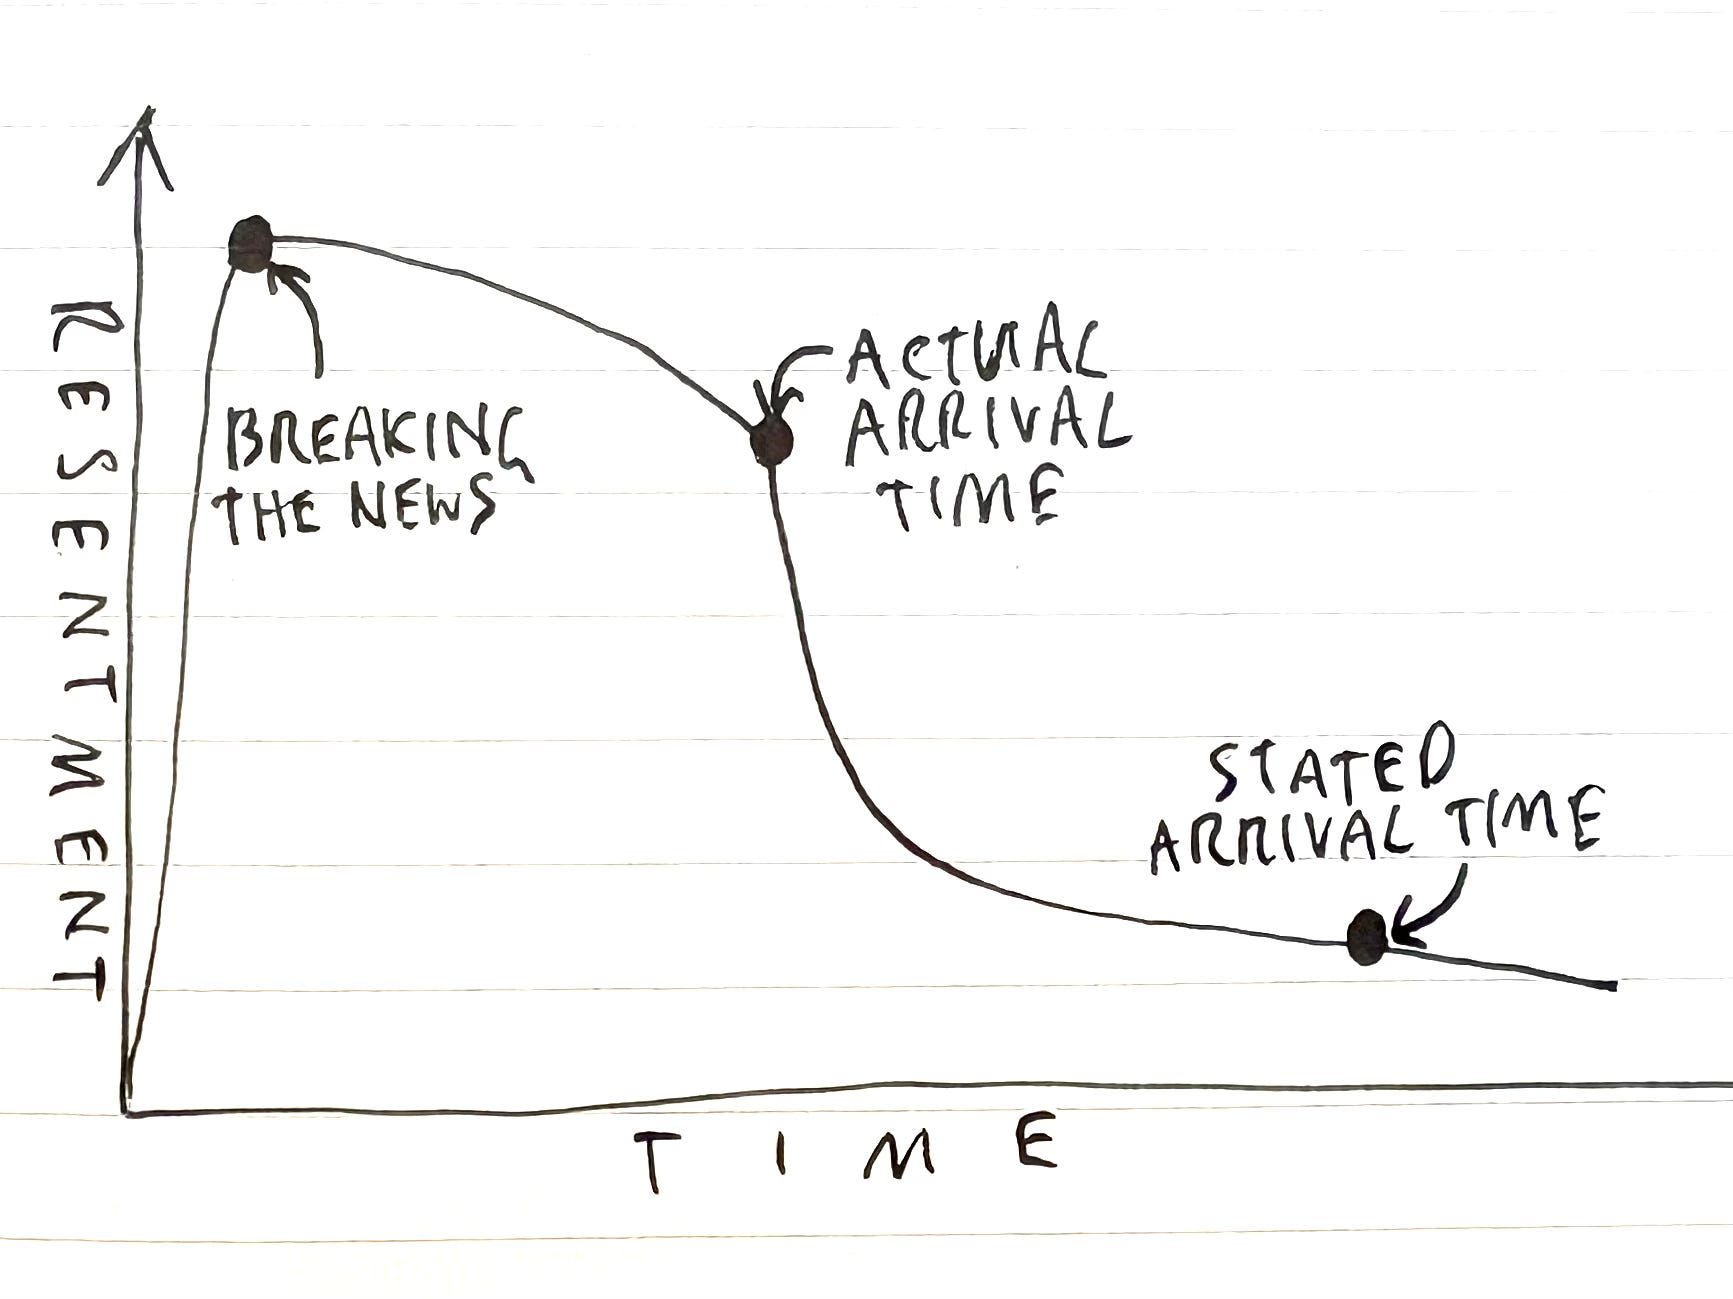 RESENTMENT
BREAKING
THE NEWS
ACTUAL
ARRIVAL
TIME
STATED
ARRIVAL TIME
TIME